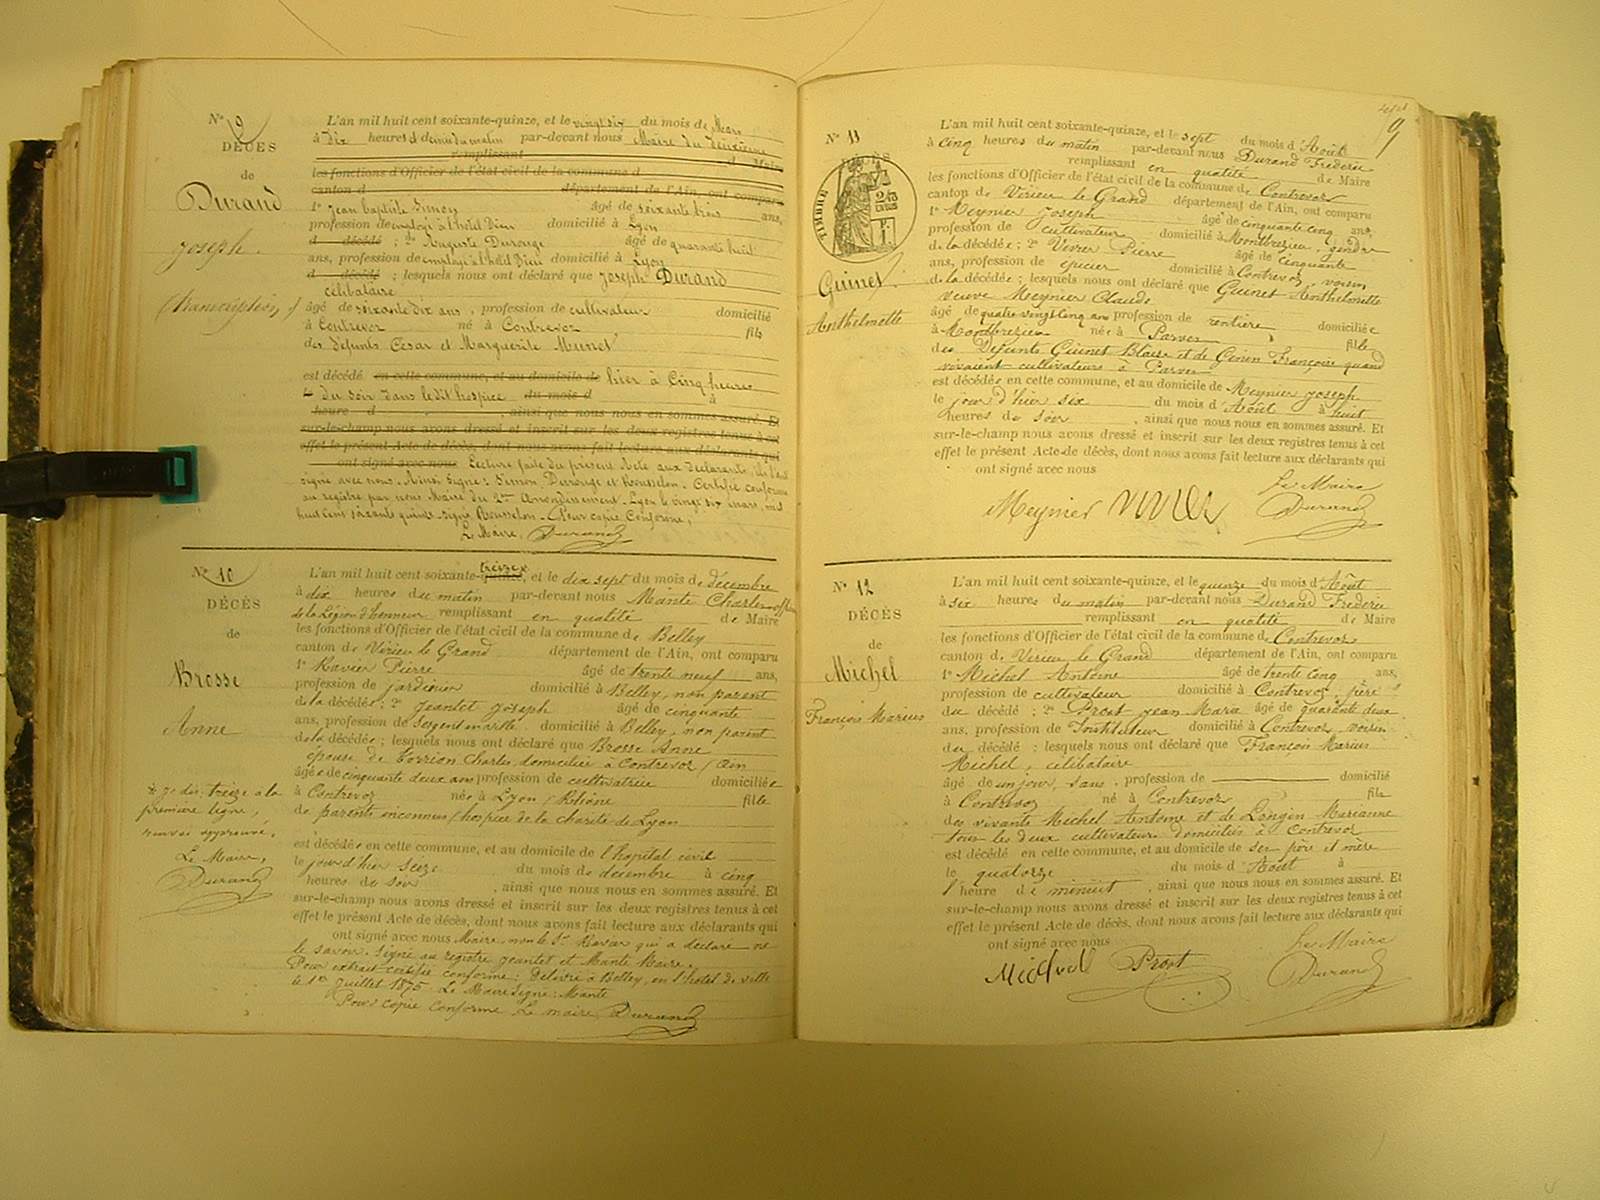 N° 9
DÉCÈS
de
Durand
Joseph.
(transcription)
L'an mil huit cent soixante-quinze, et le vingt six du mois de Mars
à dix heures et demie du matin par-devant nous Maire du deuxième
remplissant de Maire
les fonctions d'Officier de l'état civil de la commune d
canton d département de l'Ain, ont comparu
1° Jean baptiste Simon âgé de soixante trois ans,
profession de employé à l'hôtel Dieu domicilié à Lyon
d décédé ; 2° Auguste Durouge âgé de quarante huit
ans, profession de employé à l'hôtel Dieu domicilié à Lyon
d décédé ; lesquels nous ont déclaré que Joseph Durand
célibataire
âgé de soixante dix ans, profession de cultivateur domicilié
à Contrevoz né à Contrevoz fils
des défunts César et Marguerite Munet
est décédé en cette commune, et au domicile de hier à Cinq heures
du soir dans le dit hospice du mois d à
heure d , ainsi que nous nous en sommes assuré. Et
sur-le-champ nous avons dressé et inscrit sur les deux registres tenus à cet
effet le présent Acte de décès, dont nous avons fait lecture aux déclarants qui
ont signé avec nous Lecture faite du présent Acte aux déclarants, ils l'ont
signé avec nous. Ainsi signé : Simon, Durouge et Rousselon. Certifié conforme
au registre par nous Maire du 2me Arrondissement. Lyon le vingt six mars, mil
huit cent soixante quinze. signé Rousselon. Pour copie Conforme,
Le Maire, Durand
N° 10
DÉCÈS
de
Brosse
Anne
* Je dis treize à la
première ligne,
renvoi approuvé.
Le Maire,
Durand
treize
L'an mil huit cent soixante-quinze, et le dix sept du mois de décembre
à dix heures du matin par-devant nous Mante Charles officier
de la Légion d'honneur remplissant en qualité de Maire
les fonctions d'Officier de l'état civil de la commune de Belley
canton de Virieu le Grand département de l'Ain, ont comparu
1° Ravier Pierre âgé de trente neuf ans,
profession de jardinier domicilié à Belley, non parent
de la décédée ; 2° Jeantet Joseph âgé de cinquante
ans, profession de Sergent de ville domicilié à Belley, non parent
de la décédée ; lesquels nous ont déclaré que Brosse Anne
épouse de Torrion Charles, domiciliée à Contrevoz (Ain
âgée de cinquante deux ans profession de cultivatrice domiciliée
à Contrevoz née à Lyon (Rhône) fille
de parents inconnus (hospice de la charité de Lyon
est décédée en cette commune, et au domicile de l'hôpital civil
le jour d'hier seize du mois de décembre à cinq
heures de soir , ainsi que nous nous en sommes assuré. Et
sur-le-champ nous avons dressé et inscrit sur les deux registres tenus à cet
effet le présent Acte de décès, dont nous avons fait lecture aux déclarants qui
ont signé avec nous Maire, non le Sr Ravier qui a déclaré ne
le savoir. Signé au registre Jeantet et Mante Maire.
Pour extrait certifié conforme : Délivré à Belley, en l'hôtel de ville
le 1er Juillet 1875. Le Maire Signé : Mante
Pour copie conforme Le maire, Durand
9
N° 11
DÉCÈS
TIMBRE
Guinet
Anthelmette
L'an mil huit cent soixante-quinze, et le sept du mois d'Août
à cinq heures du matin par-devant nous Durand Frédéric
remplissant en qualité de Maire
les fonctions d'Officier de l'état civil de la commune de Contrevoz
canton de Virieu le Grand département de l'Ain, ont comparu
1° Meynier Joseph âgé de cinquante cinq ans,
profession de cultivateur domicilié à Montbrezieu, gendre
de la décédée ; 2° Vivier Pierre âgé de cinquante
ans, profession de épicier domicilié à Contrevoz, voisin
de la décédée ; lesquels nous ont déclaré que Guinet Anthelmette
veuve Meynier Claude
âgée de quatre vingt cinq ans profession de rentière domiciliée
à Montbrezieu née à Parves fille
des Défunts Guinet Blaise et de Genin Françoise quand
vivaient cultivateurs à Parves
est décédée en cette commune, et au domicile de Meynier Joseph
le jour d'hier six du mois d'Août à huit
heures de soir , ainsi que nous nous en sommes assuré. Et
sur-le-champ nous avons dressé et inscrit sur les deux registres tenus à cet
effet le présent Acte de décès, dont nous avons fait lecture aux déclarants qui
ont signé avec nous
Le Maire
Meynier Durand
N° 12
DÉCÈS
de
Michel
François Marius
L'an mil huit cent soixante-quinze, et le quinze du mois d'Août
à six heures du matin par-devant nous Durand Frédéric
remplissant en qualité de Maire
les fonctions d'Officier de l'état civil de la commune de Contrevoz
canton de Virieu le Grand département de l'Ain, ont comparu
1° Michel Antoine âgé de trente cinq ans,
profession de cultivateur domicilié à Contrevoz, père
du décédé ; 2° Prost Jean Marie âgé de quarante deux
ans, profession de Instituteur domicilié à Contrevoz, voisin
du décédé ; lesquels nous ont déclaré que François Marius
Michel, célibataire
âgé de un jour, sans profession de domicilié
à Contrevoz né à Contrevoz fils
des vivants Michel Antoine et de Longin Marianne
tous les deux cultivateurs domiciliés à Contrevoz
est décédé en cette commune, et au domicile de ses père et mère
le quatorze du mois d'Août à
l'heure de minuit , ainsi que nous nous en sommes assuré. Et
sur-le-champ nous avons dressé et inscrit sur les deux registres tenus à cet
effet le présent Acte de décès, dont nous avons fait lecture aux déclarants qui
ont signé avec nous
Le Maire
Michel Prost Durand